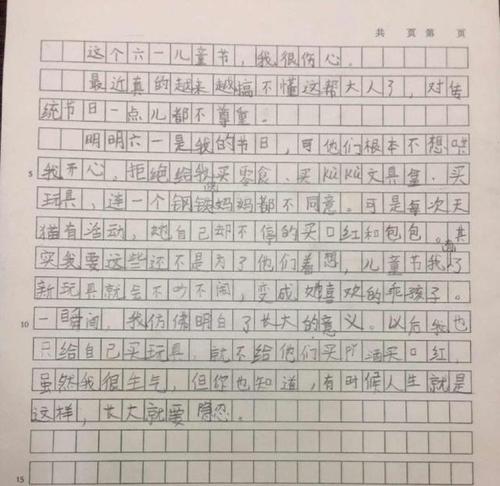 共 页 第 页
这个六一儿童节,我很伤心。
最近真的越来越搞不懂这帮大人了,对传
统节日一点儿都不尊重。
明明六一是我的节日,可他们根本不想哄
5 我开心。拒绝给我买零食、买kùkù文具盒、买
玩具,连一个钢铁侠妈妈都不同意。可是每次天
猫有活动,她自己却不停的买口红和包包。其
实我要这些还不是为了他们着想,儿童节我有了
新玩具就会不吵不闹,变成她喜欢的乖孩子。
10 一瞬间,我仿佛明白了长大的意义。以后我也
只给自己买玩具,就不给他们买口红,
虽然我很生气,但你也知道,有时候人生就是
这样,长大就要隐忍。
15